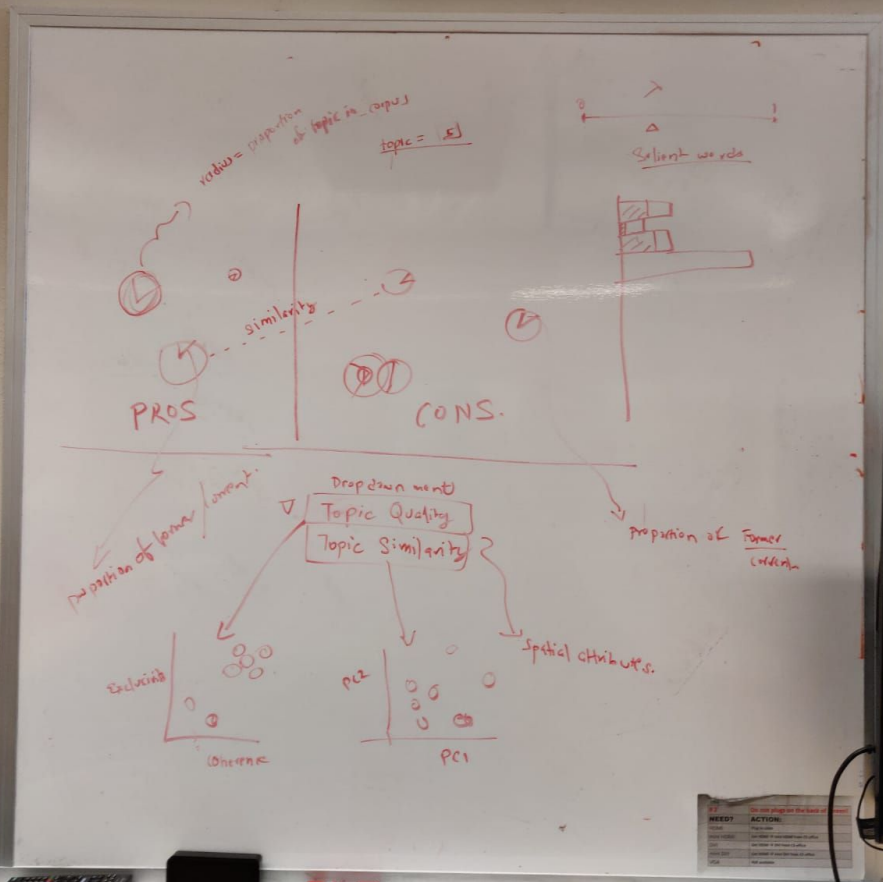 radius = proportion
of topic in corpus
topic = 5
0
1
λ
Salient words
similarity
PROS
CONS.
proportion of former/current.
Dropdown menu
Topic Quality
Topic Similarity
proportion of Former
Spatial attributes.
PC2
PC1
NEED?
ACTION: